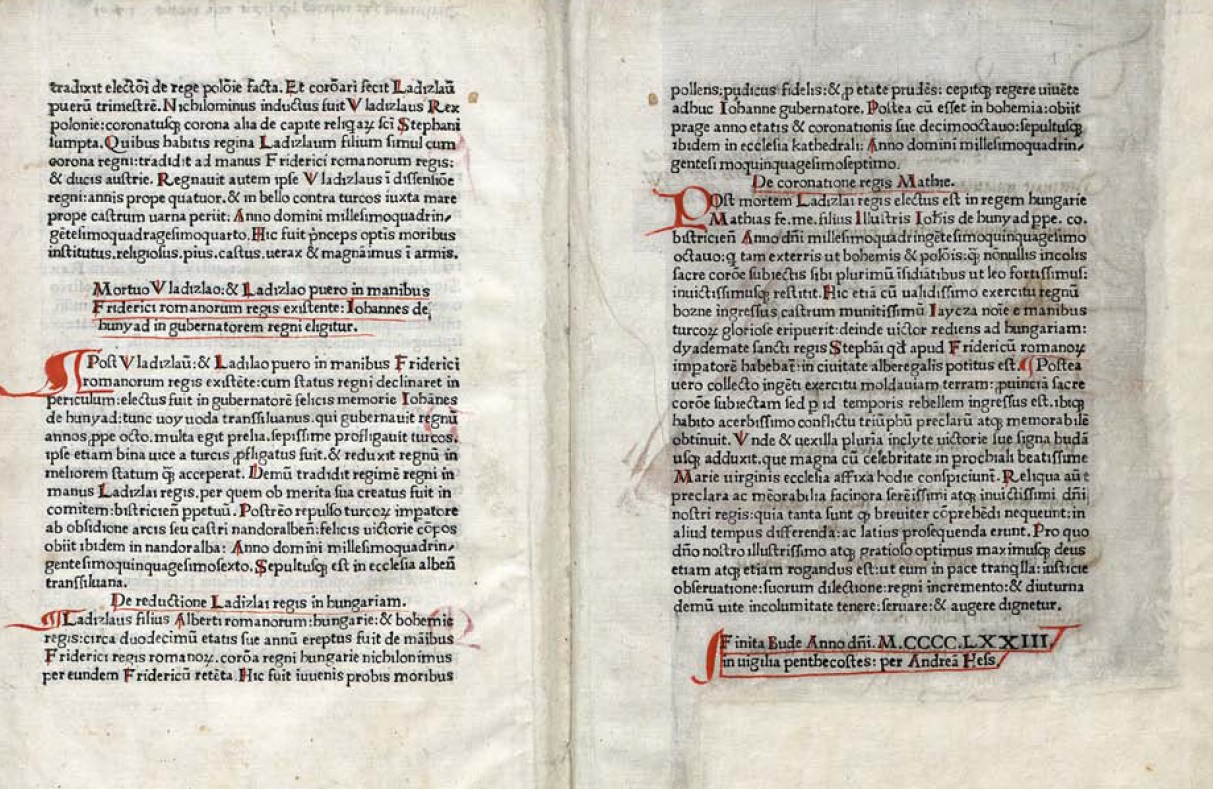 tradixit electōi de rege polōie facta. Et corōari fecit Ladizlaū
puerū trimestrē. Nichilominus inductus fuit Vladizlaus Rex
polonie: coronatusqꝫ corona alia de capite reliqaꝝ sci Stephani
sumpta. Quibus habitis regina Ladizlaum filium simul cum
corona regni: tradidit ad manus Friderici romanorum regis:
& ducis austrie. Regnauit autem ipse Vladizlaus ī dissensiōe
regni: annis prope quatuor. & in bello contra turcos iuxta mare
prope castrum uarna periit: Anno domini millesimoquadrin,
gētesimoquadragesimoquarto. Hic fuit pnceps optīs moribus
institutus. religiosus. pius. castus. uerax & magnaīmus ī armis.
Mortuo Vladizlao: & Ladizlao puero in manibus
Friderici romanorum regis existente: Iohannes de,
hunyad in gubernatorem regni eligitur.
Post Vladizlaū: & Ladilao puero in manibus Friderici
romanorum regis existēte: cum status regni declinaret in
periculum: electus fuit in gubernatorē felicis memorie Iohānes
de hunyad: tunc uoyuoda transsiluanus. qui gubernauit regnū
annos ꝓpe octo. multa egit prelia. sepissime profligauit turcos.
ipse etiam bina uice a turcis ꝓfligatus fuit. & reduxit regnū in
meliorem statum qꝫ acceperat. Demū tradidit regimē regni in
manus Ladizlai regis. per quem ob merita sua creatus fuit in
comitem: bistricień ppetuū. Postrēo repulso turcoꝝ impatore
ab obsidione arcis seu castri nandoralbeń: felicis uictorie cōpos
obiit ibidem in nandoralba: Anno domini millesimoquadrin,
gentesimoquinquagesimosexto. Sepultusqꝫ est in ecclesia albeń
transsiluana.
De reductione Ladizlai regis in hungariam.
Ladizlaus filius Alberti romanorum: hungarie: & bohemie
regis: circa duodecimū etatis sue annū ereptus fuit de māibus
Friderici regis romanoꝝ. corōa regni hungarie nichilonimus
per eundem Fridericū retēta. Hic fuit iuuenis probis moribus
pollens: pudicus fidelis: & ꝓ etate prudēs: cepitqꝫ regere uiuēte
adhuc Iohanne gubernatore. Postea cū esset in bohemia: obiit
prage anno etatis & coronationis sue decimooctauo: sepultusqꝫ
ibidem in ecclesia kathedrali: Anno domini millesimoquadrin,
gentesimoquinquagesimoseptimo.
De coronatione regis Mathie.
Post mortem Ladizlai regis electus est in regem hungarie
Mathias fe. me. filius Illustris Iohīs de hunyad ppe. co.
bistricień Anno dñi millesimoquadringētesimoquinquagesimo
octauo: q tam exterris ut bohemis & polōis: qꝫ nōnullis incolis
sacre corōe subiectis sibi plurimū īsidiātibus ut leo fortissimus:
inuictissimusqꝫ restitit. Hic etiā cū ualidissimo exercitu regnū
bozne ingressus castrum munitissimū Iaycza noīe e manibus
turcoꝝ gloriose eripuerit: deinde uictor rediens ad hungariam:
dyademate sancti regis Stephāi qd̄ apud Fridericū romanoꝝ
impatorē habebat: in ciuitate alberegalis potitus est. Postea
uero collecto ingēti exercitu moldauiam terram: ꝓuinciā sacre
corōe subiectam sed p id temporis rebellem ingressus est. ibiqꝫ
habito acerbissimo conflictu triūphū preclarū atqꝫ memorabilē
obtinuit. Vnde & uexilla pluria inclyte uictorie sue signa budā
usqꝫ adduxit. que magna cū celebritate in prochiali beatissime
Marie uirginis ecclesia affixa hodie conspiciunt̄. Reliqua aūt
preclara ac meōrabilia facinora serēissimi atqꝫ inuictissimi dñi
nostri regis: quia tanta sunt qꝫ breuiter cōprehēdi nequeunt: in
aliud tempus differenda: ac latius prosequenda erunt. Pro quo
dño nostro illustrissimo atqꝫ gratioso optimus maximusqꝫ deus
etiam atqꝫ etiam rogandus est: ut eum in pace tranqlla: iusticie
obseruatione: suorum dilectione: regni incremento: & diuturna
demū uite incolumitate tenere: seruare: & augere dignetur.
Finita Bude Anno dñi. M.CCCC.LXXIII.
in uigilia penthecostes: per Andreā Hess.